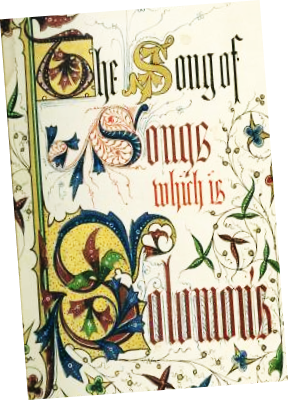 The Song of
Songs
which is
Solomon's